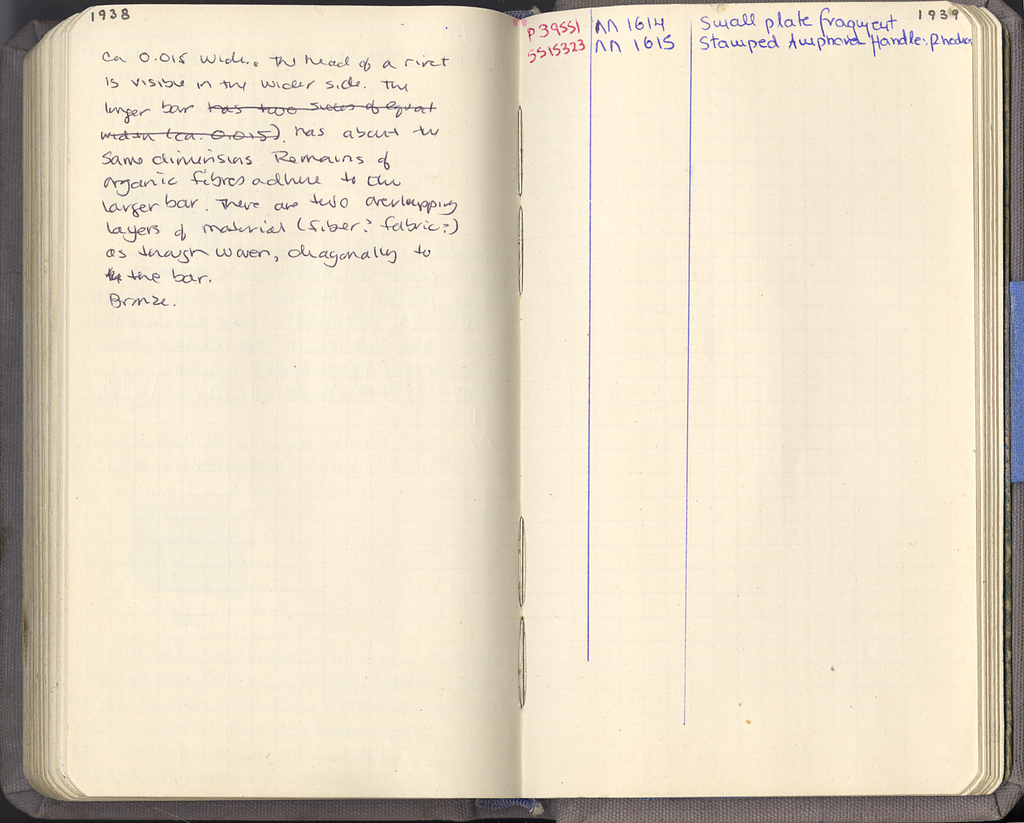 1938
ca 0.015 wide. The head of a rivet
is visible in the wider side. The
longer bar has two sides of equal
width (ca. 0.015). has about the
same dimensions Remains of
organic fibres adhere to the
larger bar. There are two overlapping
layers of material (fiber? fabric?)
as though woven, diagonally to
the the bar.
Bronze.
1939
P 39551 ΛΛ 1614 Small plate fragment
SS15323 ΛΛ 1615 Stamped Amphora Handle: Rhodian